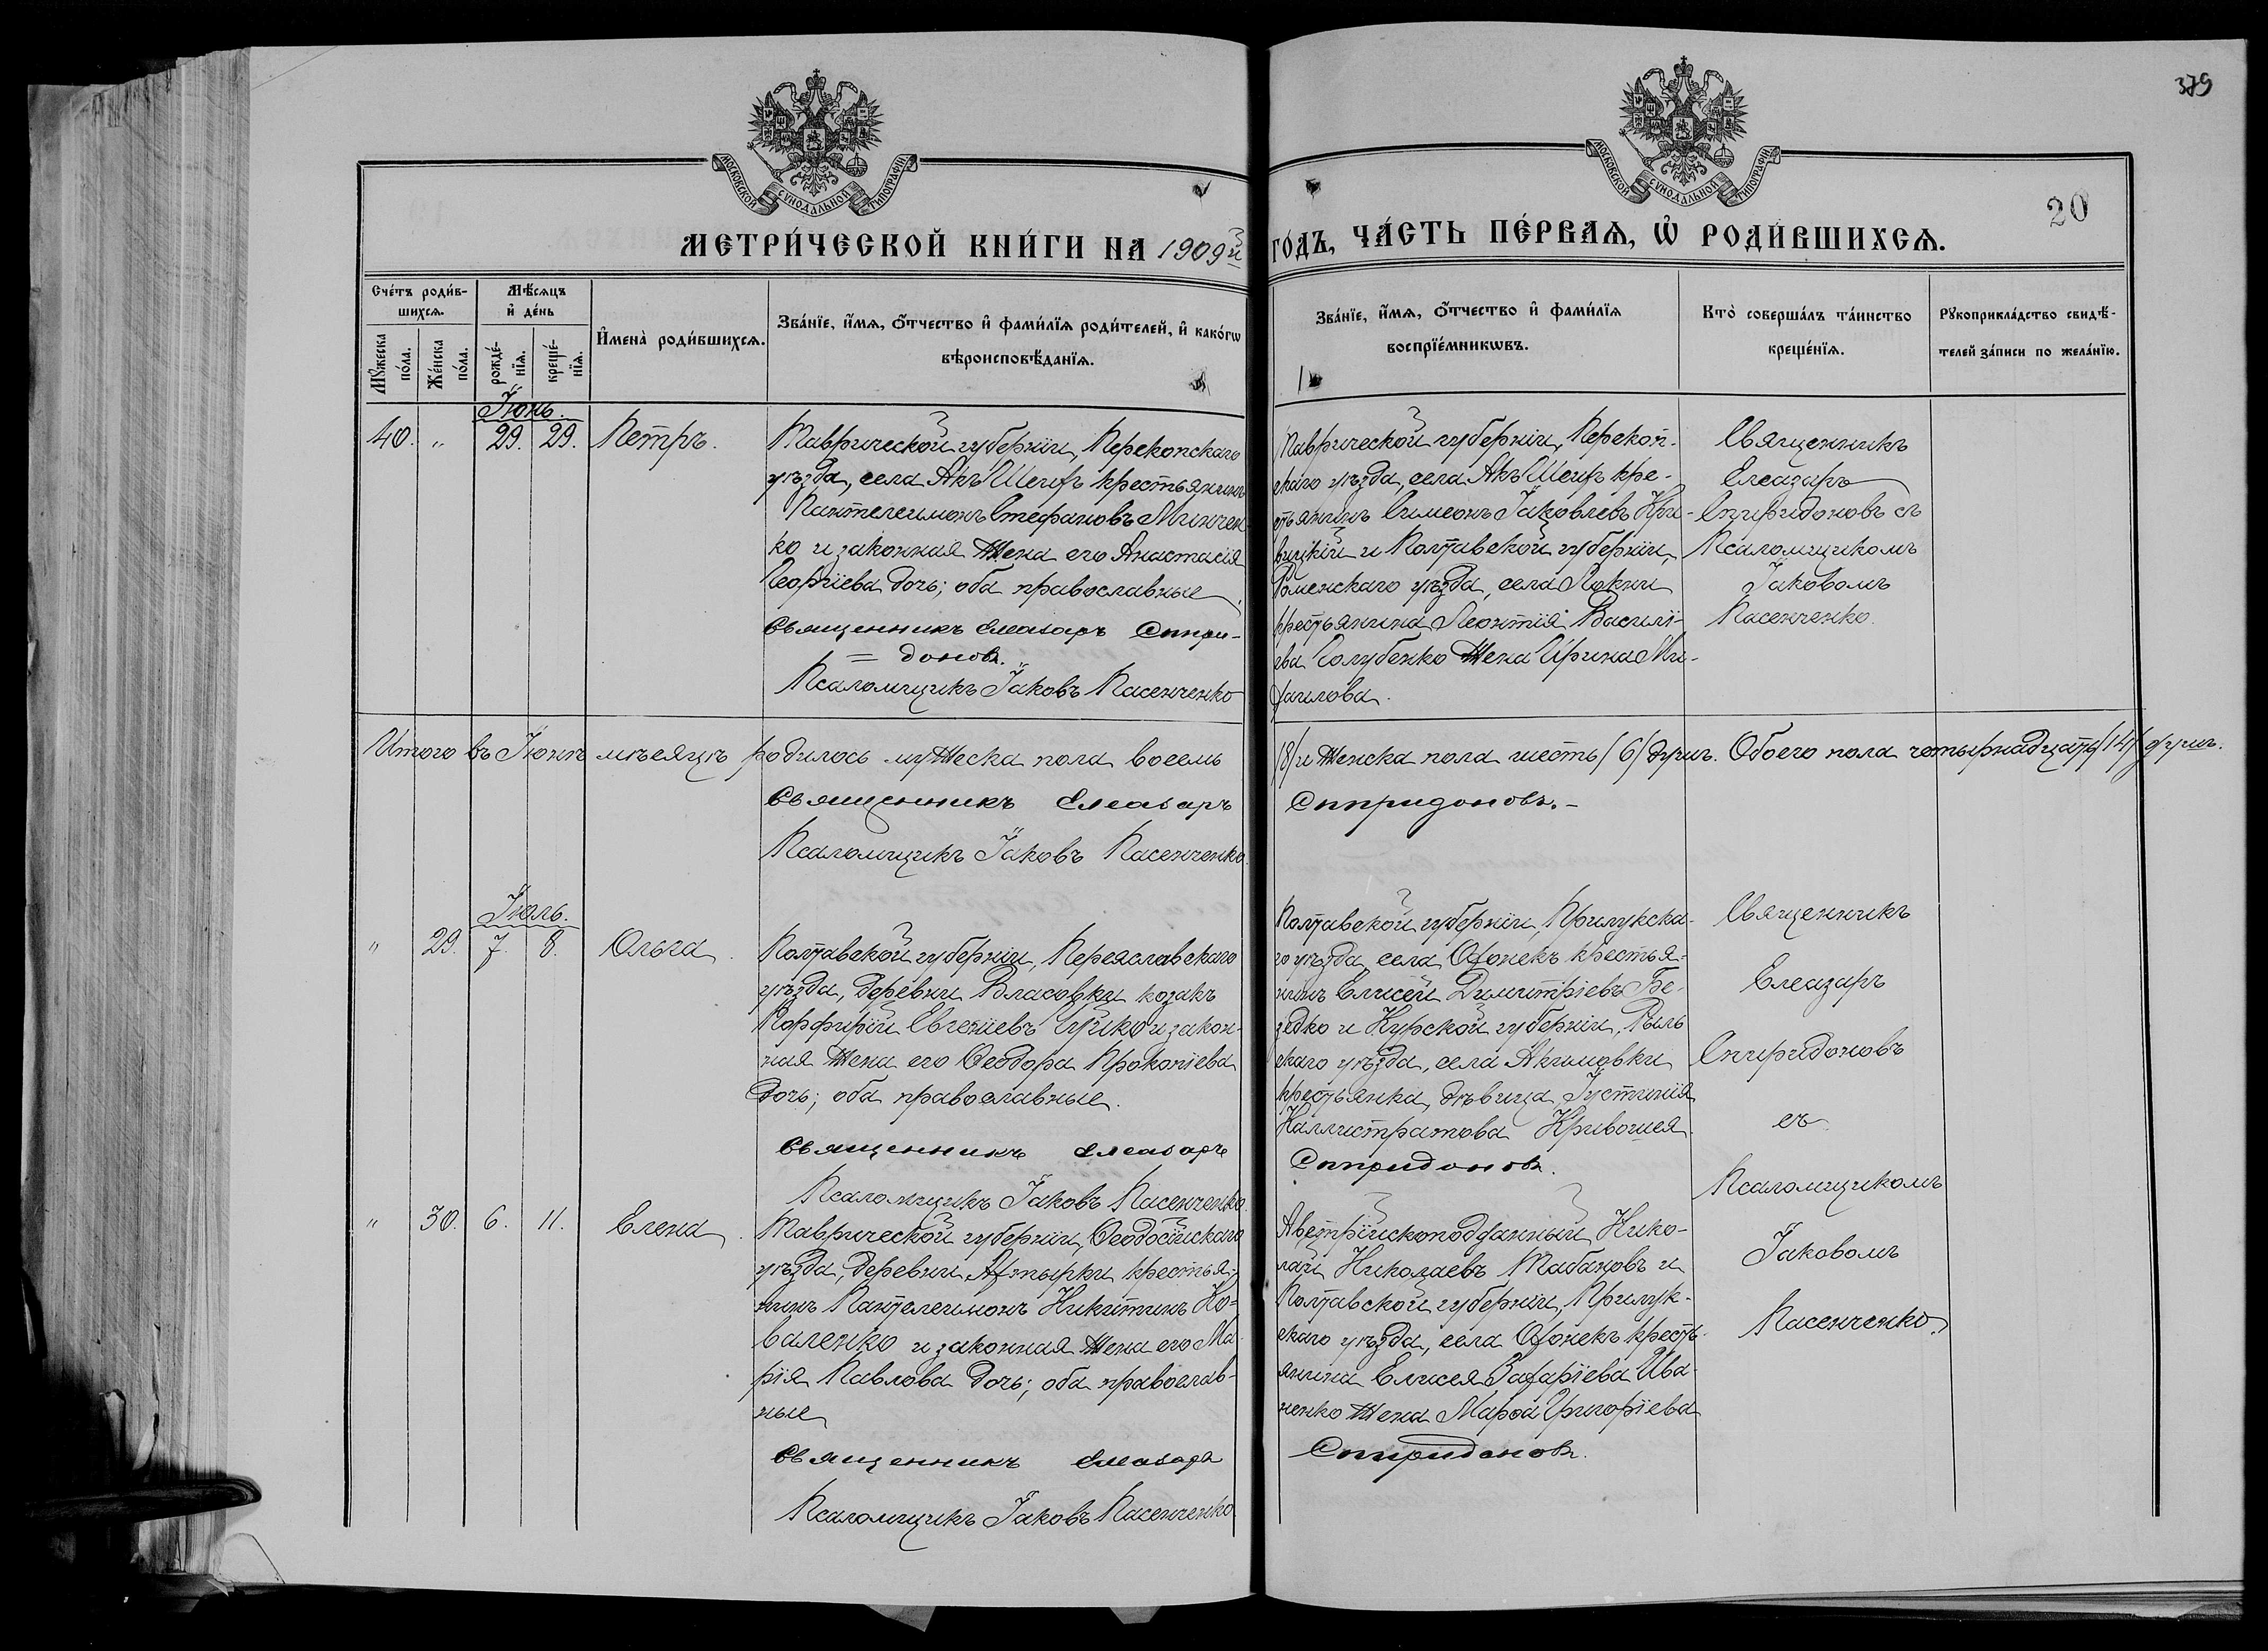 379
МОСКОВСКОЙ СѴНОДАЛЬНОЙ ТИПОГРАФІИ
МОСКОВСКОЙ СѴНОДАЛЬНОЙ ТИПОГРАФІИ
20
МЕТРИ́ЧЕСКОЙ КНИ́ГИ НА 1909й ГО́ДЪ, ЧА́СТЬ ПЕ́РВАѦ, Ѡ҆ РОДИ́ВШИХСѦ.
Сче́тъ роди́в-
шихсѧ.
Мꙋжеска по́ла.
Же́нска по́ла.
Мѣ́сѧцъ
и҆ де́нь
рожде́-нїѧ.
креще́-нїѧ.
И҆мена̀ роди́вшихсѧ.
Зва́нїе, и҆́мѧ, ѻ҆́тчество и҆ фами́лїѧ роди́телей, и҆ како́гѡ
вѣроисповѣ́данїѧ.
Зва́нїе, и҆́мѧ, ѻ҆́тчество и҆ фами́лїѧ
воспрїе́мникѡвъ.
Кто̀ соверша́лъ та́инство
креще́нїѧ.
Рꙋкоприкла́дство свидѣ́-
телей за́писи по жела́нїю.
Іюнь.
40. " 29. 29. Петръ.
Таврической губерніи, Перекопскаго
уѣзда, села Акъ Шеихъ крестьянинъ
Пантелеимонъ Стефановъ Минчен-
ко и законная жена его Анастасія
Георгіева дочь; оба православные.
Священникъ Елеазаръ Спири-
= доновъ.
Псаломщикъ Іаковъ Пасенченко
Таврической губерніи, Перекоп-
скаго уѣзда, села Акъ Шеихъ кре-
стьянинъ Симеонъ Іаковлевъ Кри-
вицкій и Полтавской губерніи,
Роменскаго уѣзда, села Локни
крестьянина Леонтія Василі-
ева Голубенко жена Ирина Ми-
хаилова.
Священникъ
Елеазаръ
Спиридоновъ съ
Псаломщикомъ
Іаковомъ
Пасенченко.
Итого въ Іюнѣ мѣсяцѣ родилось мужеска пола восемь /8/ и женска пола шесть /6/ душъ. Обоего пола четырнадцать /14/ душъ.
Священникъ Елеазаръ Спиридоновъ.-
Псаломщикъ Іаковъ Пасенченко.
Іюль.
" 29. 7. 8. Ольга.
Полтавской губерніи, Переяславскаго
уѣзда, деревни Власовки козакъ
Порфирій Евгеніевъ и закон-
ная жена его Ѳеодора Прокопіева
дочь; оба православные.
Священникъ Елеазаръ Спиридоновъ.
Псаломщикъ Іаковъ Пасенченко.
Полтавской губерніи, Прилукска-
го уѣзда, села Оѳонекъ крестья-
нинъ Елисей Димитріевъ Бе-
зедко и Курской губерніи, Рыль
скаго уѣзда, села Акимовки
крестьянка, дѣвица Іустинія
Каллистратова Кривошея.
Священникъ
Елеазаръ
Спиридоновъ
съ
Псаломщикомъ
Іаковомъ
Пасенченко.
" 30. 6. 11. Елена.
Таврической губерніи, Ѳеодосійскаго
уѣзда, деревни Ахтырки крестья-
нинъ Пантелеимонъ Никитинъ Ко-
валенко и законная жена его Ма-
рія Павлова дочь; оба православ-
ные
Священникъ Елеазаръ Спиридоновъ.
Псаломщикъ Іаковъ Пасенченко
Австрійскоподданный Нико-
лай Николаевъ Табановъ и
Полтавской губерніи, Прилук-
скаго уѣзда, села Оѳонекъ кресть-
янина Елисея Захаріева Ива-
ненко жена Марѳа ГригорІева